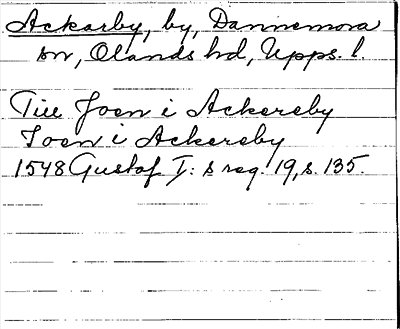 Ackarby, by, Dannemora
sn, Olands hd, Upps. l.
Till Joen i Ackereby
Joen i Ackereby
1548 Gustaf I: s reg. 19, s. 135.